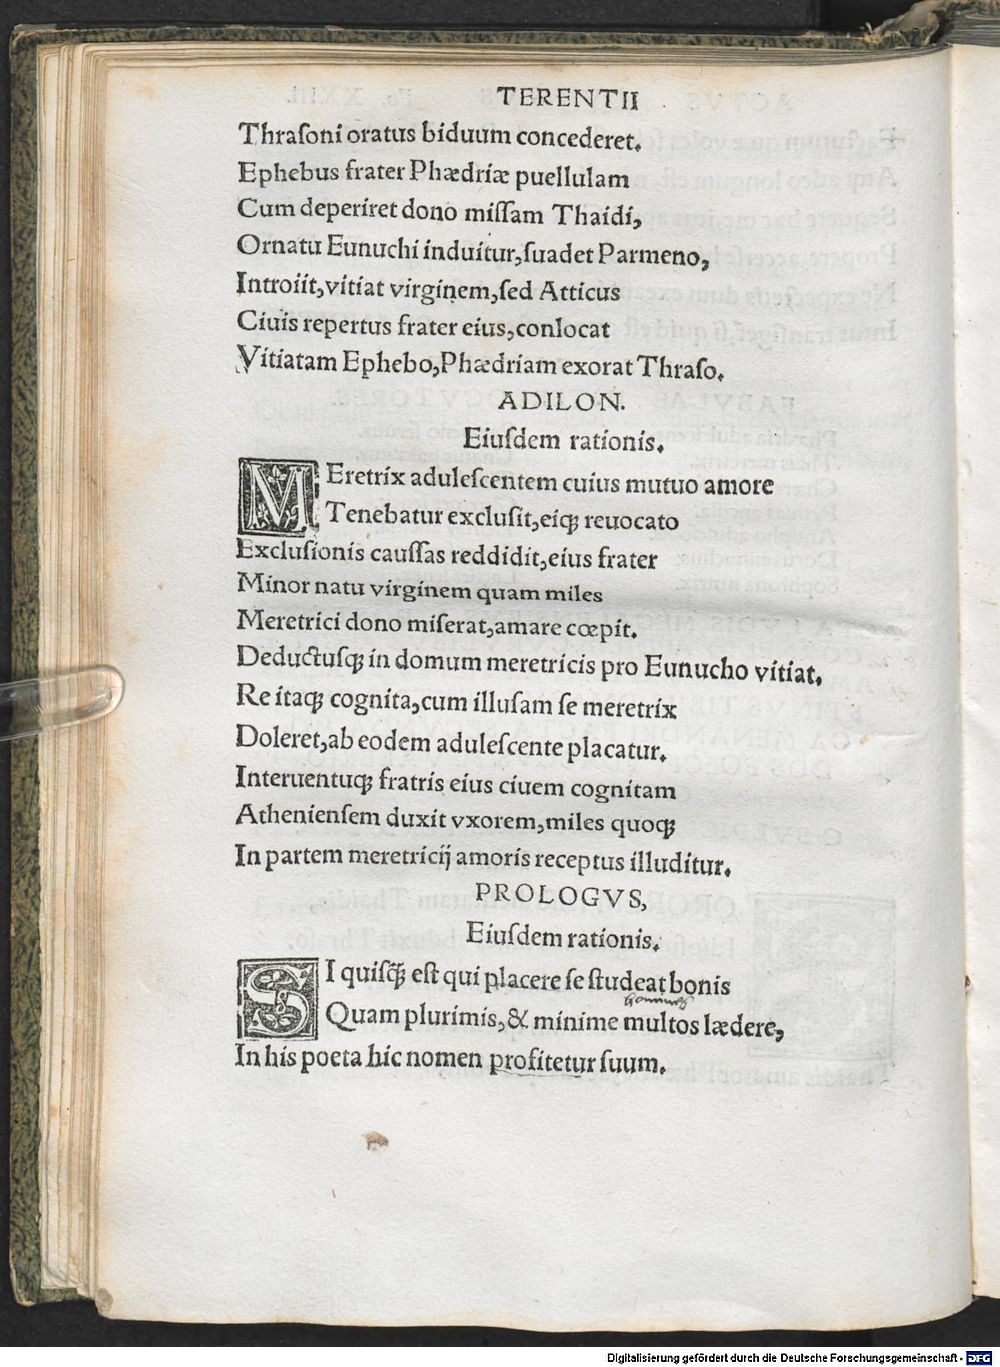 TERENTII
Thraſoni oratus biduum concederet.
Ephebus frater Phædriæ puellulam
Cum deperiret dono miſſam Thaidi,
Ornatu Eunuchi induitur,ſuadet Parmeno,
Introiit,vitiat virginem,ſed Atticus
Ciuis repertus frater eius,conlocat
Vitiatam Ephebo,Phædriam exorat Thraſo.
ADILON.
Eiuſdem rationis.
MEretrix aduleſcentem cuius mutuo amore
Tenebatur excluſit,eiqꝫ reuocato
Excluſionis cauſſas reddidit,eius frater
Minor natu virginem quam miles
Meretrici dono miſerat,amare cœpit.
Deductuſqꝫ in domum meretricis pro Eunucho vitiat.
Re itaqꝫ cognita,cum illuſam ſe meretrix
Doleret,ab eodem aduleſcente placatur.
Interuentuqꝫ fratris eius ciuem cognitam
Athenienſem duxit vxorem,miles quoqꝫ
In partem meretricij amoris receptus illuditur.
PROLOGVS,
Eiuſdem rationis.
SI quiſq̃ꝫ eſt qui placere ſe ſtudeat bonis
Quam plurimis,& minime multos lædere,
In his poeta hic nomen profitetur ſuum.
Digitalisierung gefördert durch die Deutsche Forschungsgemeinschaft - DFG